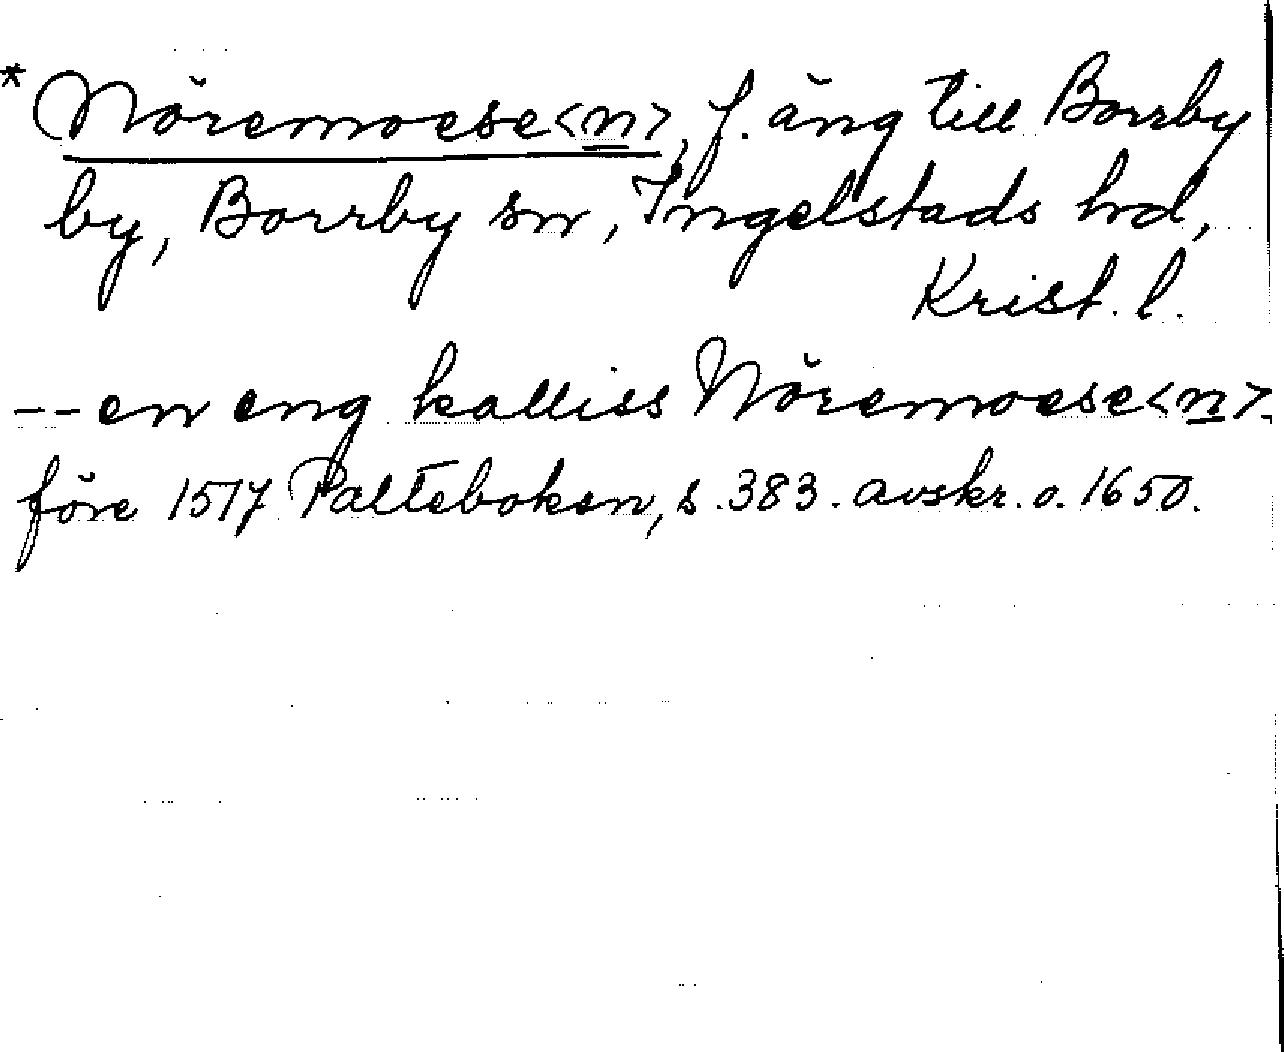 *Nöremoese<n>, f. äng till Borrby
by, Borrby sn, Ingelstads hd,
Krist. l.
-- en eng kalliss Nöremoese<n>.
före 1517 Palteboken, s. 383. avskr. o. 1650.